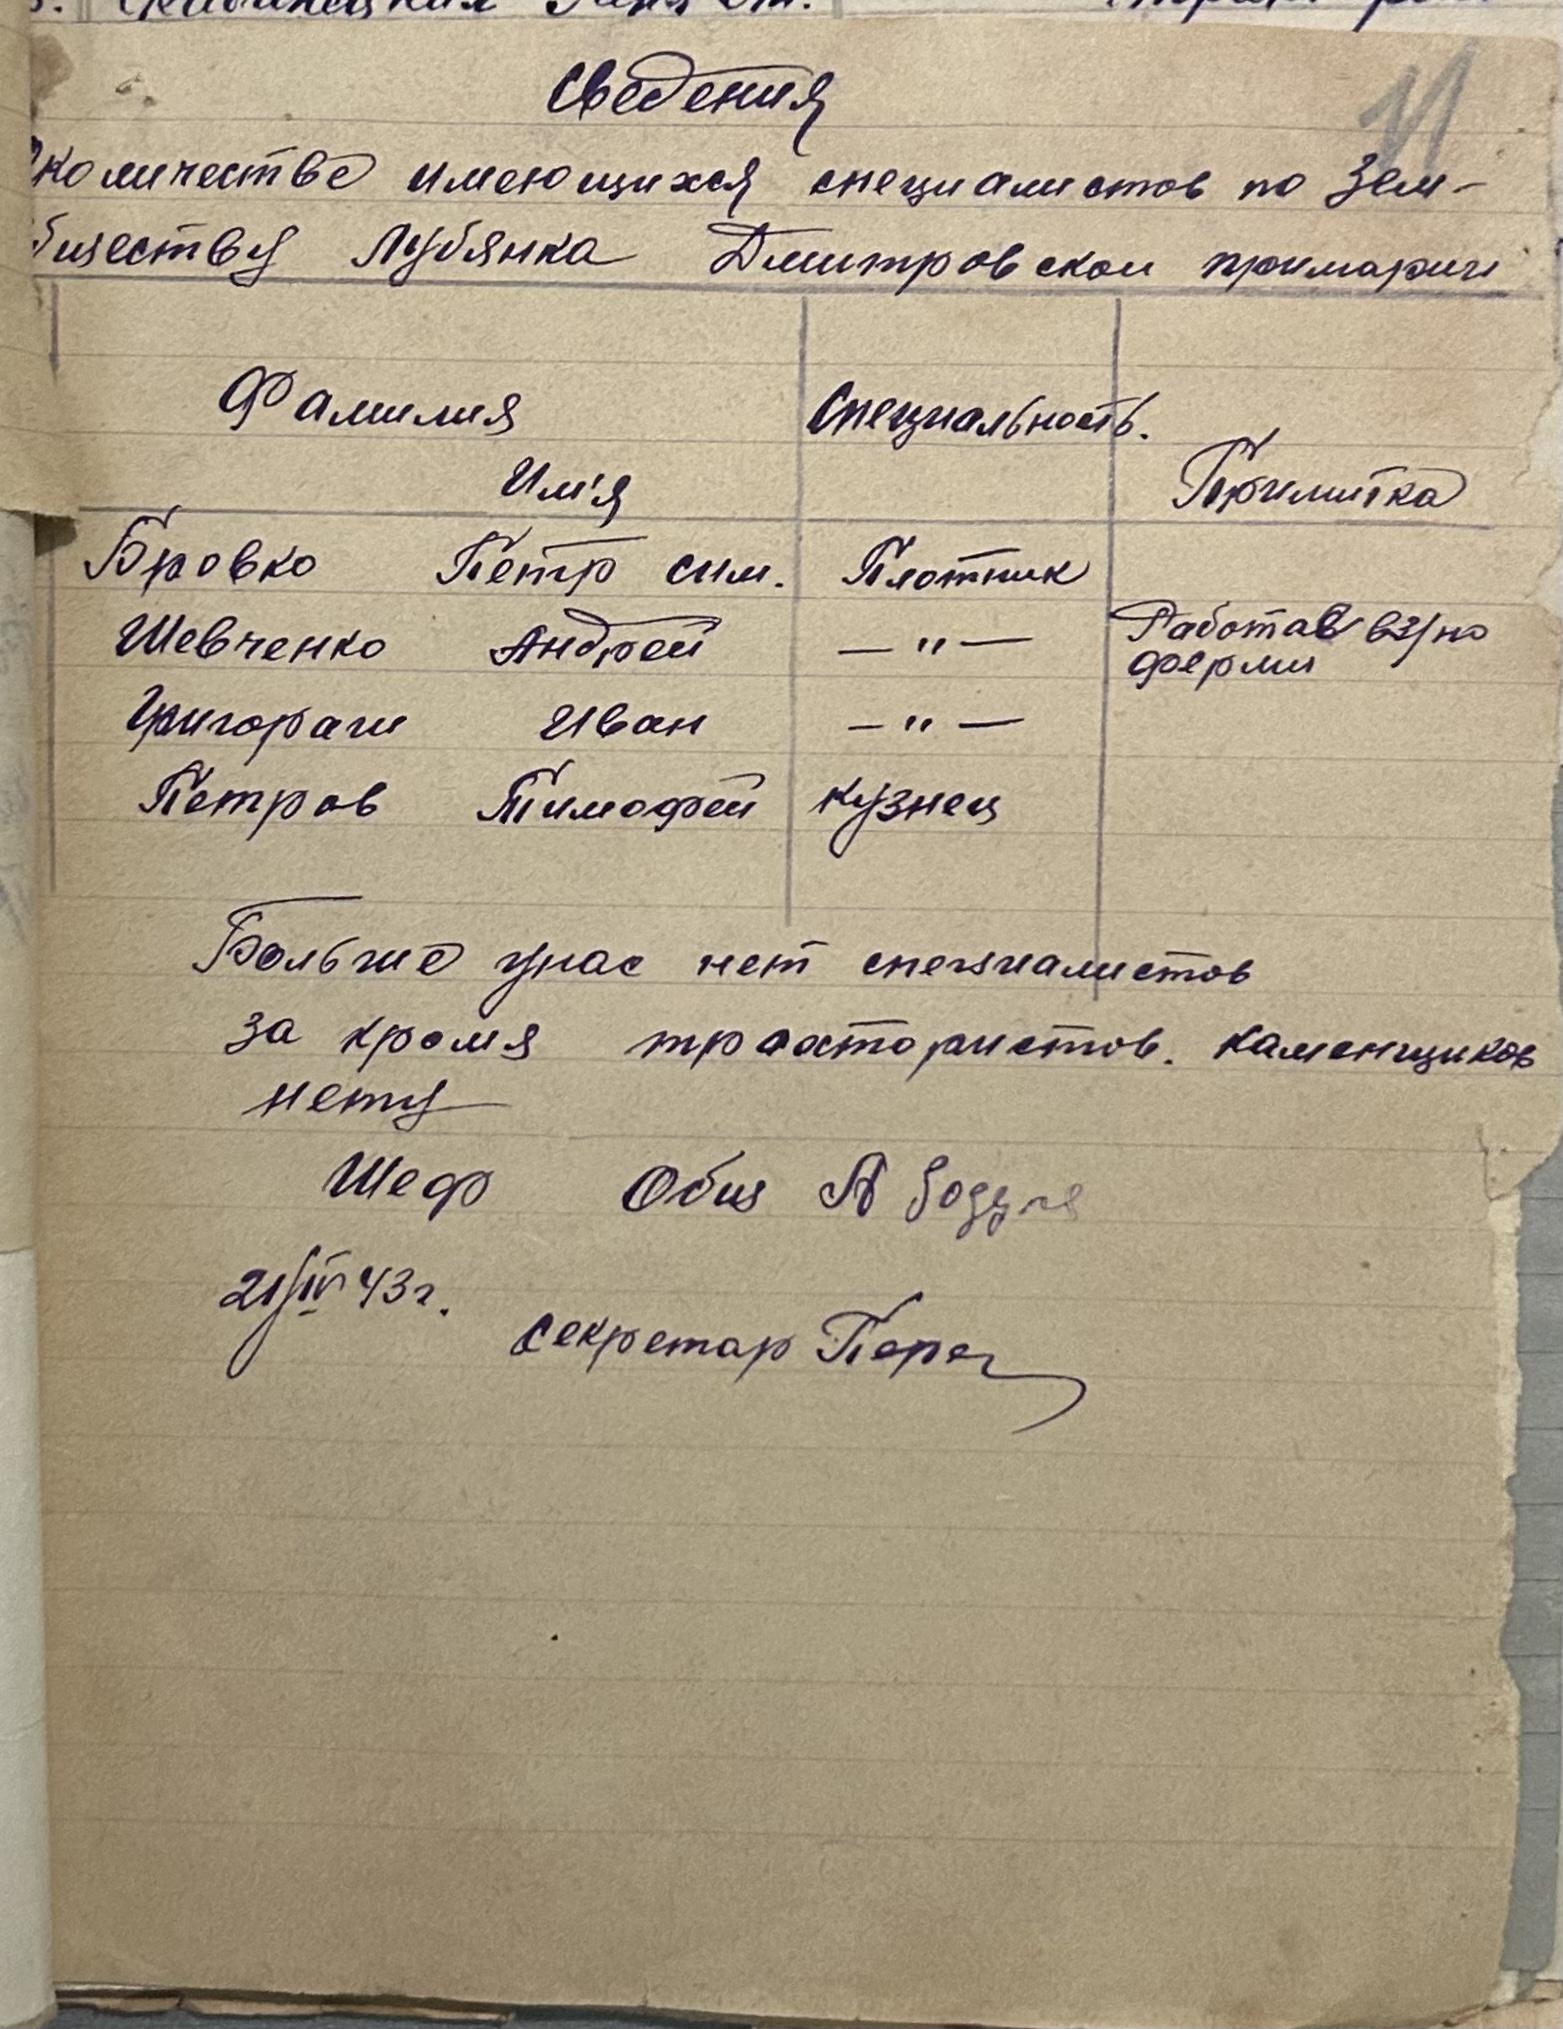 11
Сведения
количестве имеющихся специалистов по Зем-
бществу Лубянка Дмитровской примарии
Фамилия Специальность.
Им'я Примитка
Бровко Петр сим. Плотник
Шевченко Андрей — " — Работав в з/но
ферми
Григораги Иван — " —
Петров Тимофей кузнец
Больше унас нет специалистов
за кромя трактористов. каменщиков
нету
Шеф Общ А
21/IV 43 г.
секретар